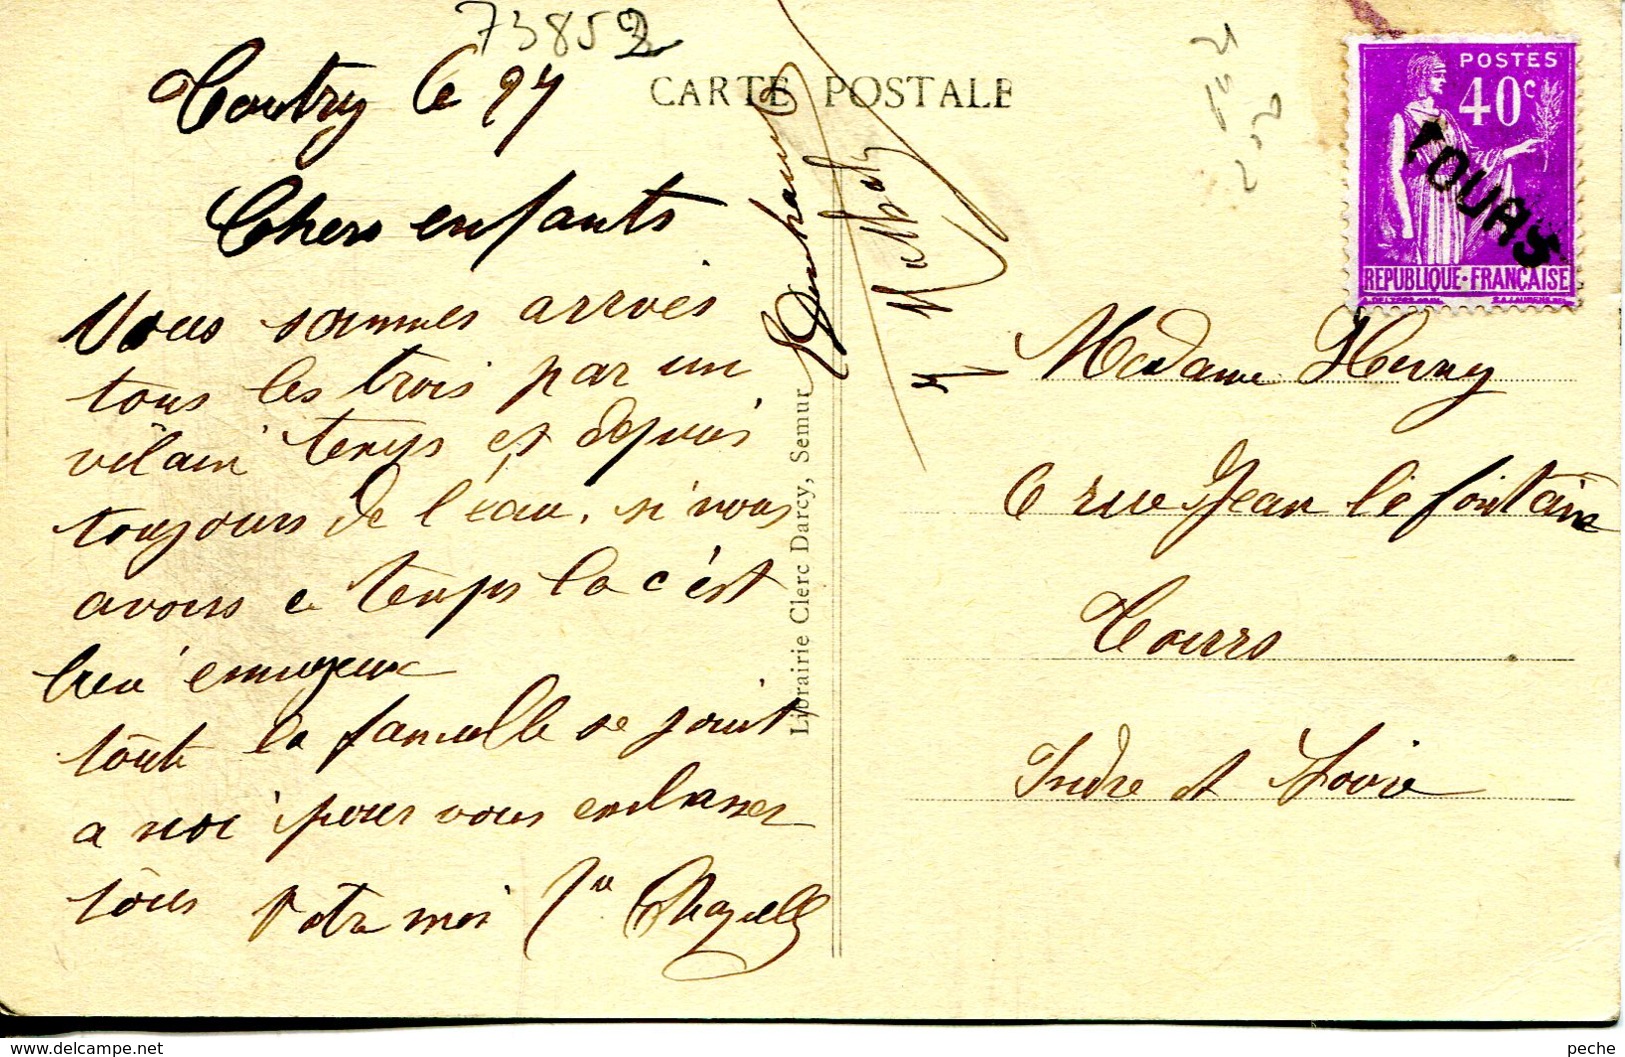 73852
Coutry le 27
CARTE POSTALE
Chers enfants
Nous sommes arrives
tous les trois par un
vilain temps et depuis
toujours de l'eau, si nous
avons ce temps la c'est
bien ennuyeux
toute la famille se joint
a moi pour vous embrasser
tous Votre mei
Librairie Clerc Darcy, Semur
POSTES
40c
TOURS
REPUBLIQUE·FRANÇAISE
Madame Henry
6 rue Jean le fontaine
Tours
Indre et Loire
peche